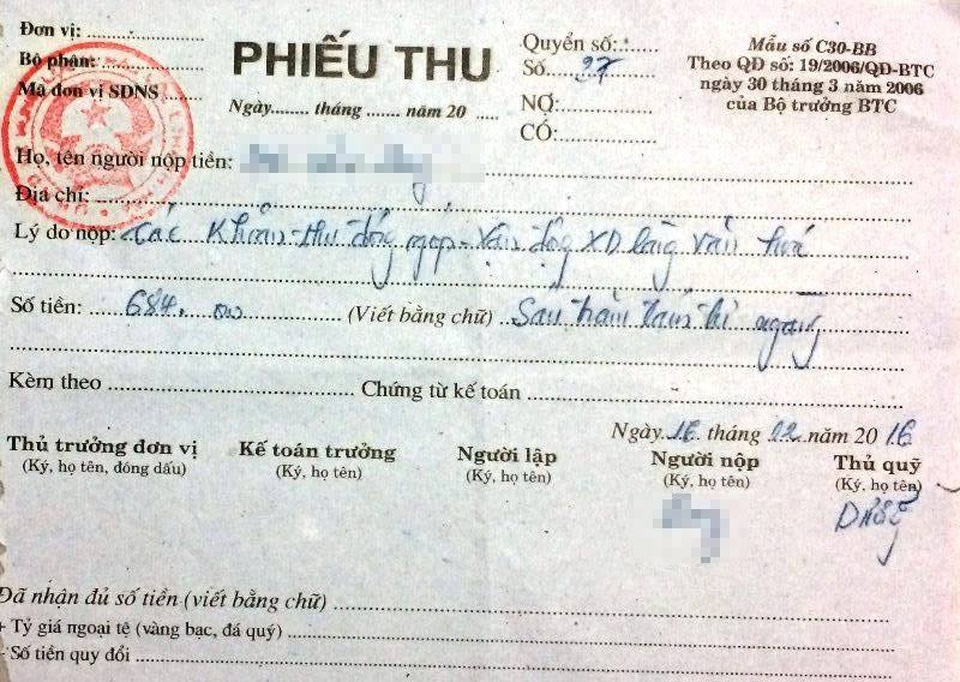 Đơn vị:
Bộ phận:
Mã đơn vị SDNS
PHIẾU THU
Ngày........ tháng ....... năm 20 ....
Quyển số:
Số 27
NỢ:
CÓ:
Mẫu số C30-BB
Theo QĐ số: 19/2006/QĐ-BTC
ngày 30 tháng 3 năm 2006
của Bộ trưởng BTC
Họ, tên người nộp tiền:
Địa chỉ:
Lý do nộp: Các khoản thu đóng góp - vận động XD làng văn hoá
Số tiền: 684. 000 (Viết bằng chữ) Sáu trăm tám tư ngàn
Kèm theo Chứng từ kế toán
Ngày 16 tháng 12 năm 2016
Thủ trưởng đơn vị Kế toán trưởng Người lập Người nộp Thủ quỹ
(Ký, họ tên, đóng dấu) (Ký, họ tên) (Ký, họ tên) (Ký, họ tên) (Ký, họ tên)
Đã nhận đủ số tiền (viết bằng chữ)
+ Tỷ giá ngoại tệ (vàng bạc, đá quý)
- Số tiền quy đổi